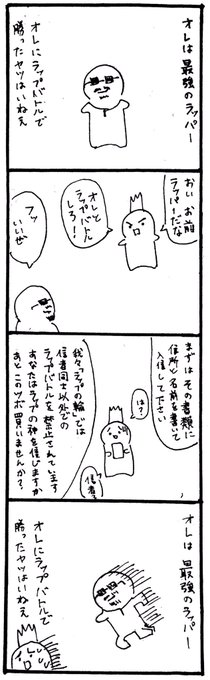 オレは最強のラッパー
オレにラップバトルで
勝ったヤツはいねえ
おい お前
ラッパーだな
オレと
ラップバトル
しろ!
フッ
いいぜ
まずはその書類に
住所と名前を書いて
入信して下さい
は?
我が「ラップの輪」では
信者同士以外での
ラップバトルを禁止されています
あなたはラップの神を信じますか
あとこのツボ買いませんか?
信者?
オレは最強のラッパー
オレにラップバトルで
勝ったヤツはいねえ